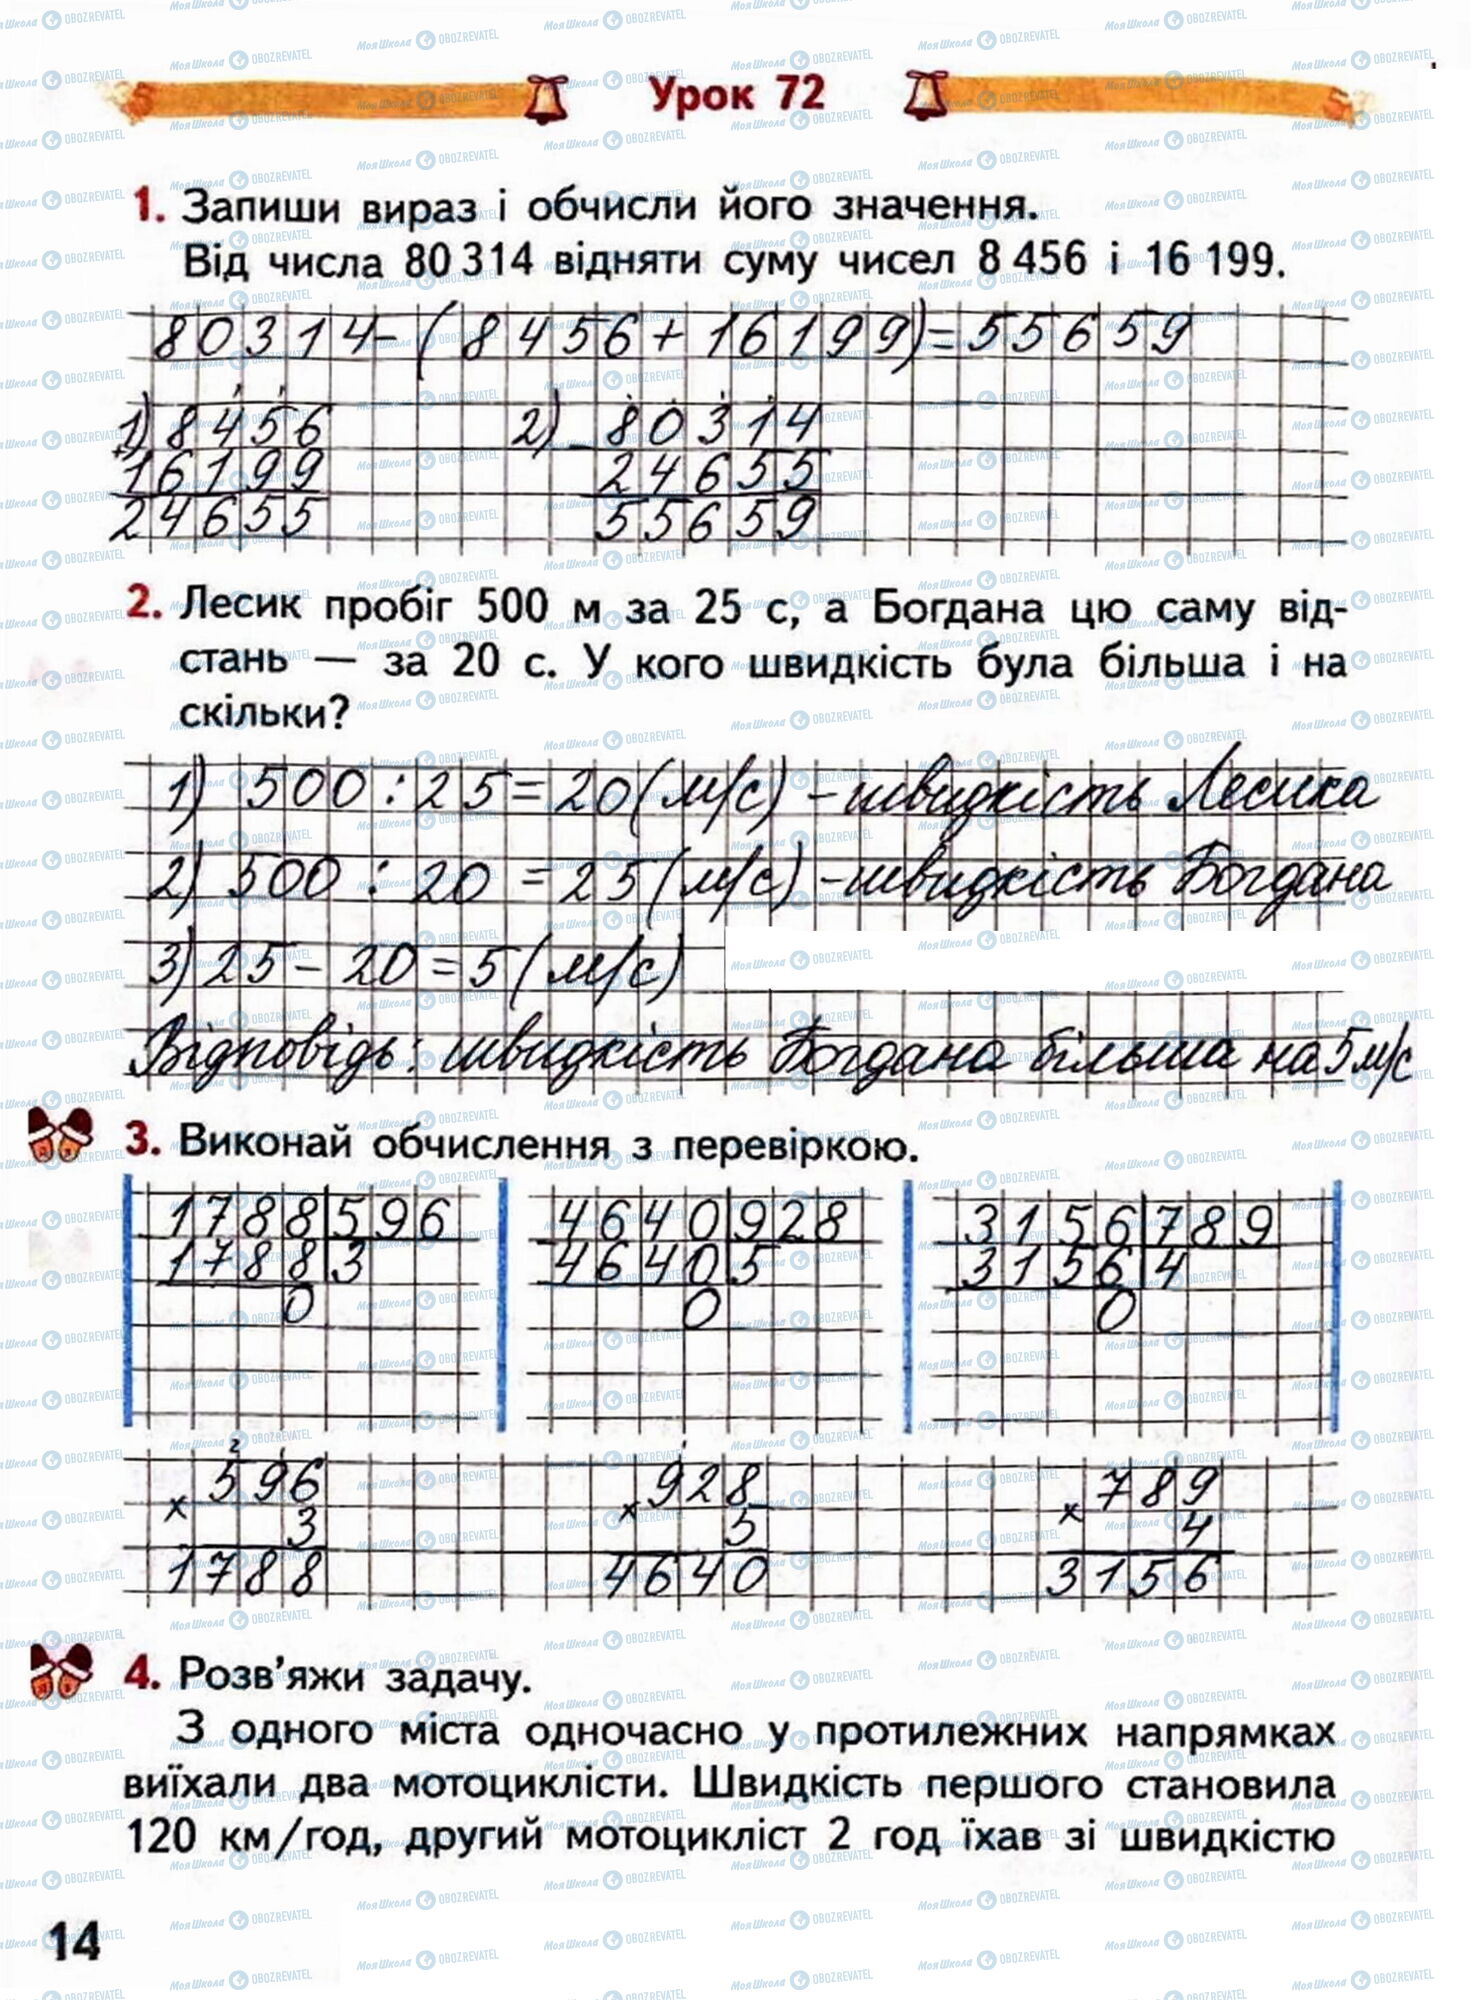 Урок 72
1. Запиши вираз і обчисли його значення.
Від числа 80 314 відняти суму чисел 8 456 і 16 199.
80314-(8456+16199)=55659
1) 8456 2) - 80314
+ 16199 24655
24655 55659
2. Лесик пробіг 500 м за 25 с, а Богдана цю саму від-
стань — за 20 с. У кого швидкість була більша і на
скільки?
1) 500:25=20(м/с) - швидкість Лесика
2) 500:20=25(м/с) - швидкість Богдана
3) 25-20=5(м/с)
Відповідь: швидкість Богдана більша на 5 м/с
3. Виконай обчислення з перевіркою.
1788 596 4640 928 3156 789
1788 3 4640 5 3156 4
0 0 0
× 596 × 928 × 789
3 5 4
1788 4640 3156
4. Розв'яжи задачу.
З одного міста одночасно у протилежних напрямках
виїхали два мотоциклісти. Швидкість першого становила
120 км/год, другий мотоцикліст 2 год їхав зі швидкістю
14
МояШкола OBOZREVATEL